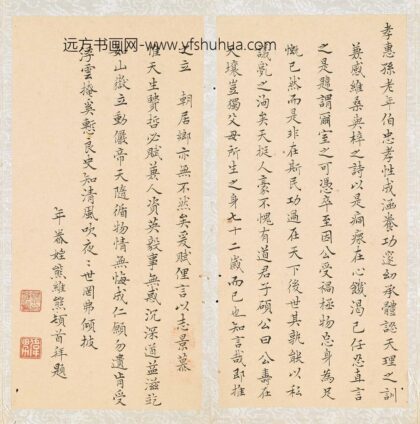 远方书画网-www.yfshuhua.com
孝惠孙老年伯忠孝性成涵養功邃幼承體認天理之訓
兼感維桑與梓之詩以是痌瘝在心饑渴已任忠直言
之是題謂爾室之可憑卒至因公受禍極物忘身為足
慨已然而是非在斯民功過在天下後世其孰能以私
議亂之洵矣天挺人豪不愧有道君子碩公曰公壽在
穹壤豈獨父母所生之身七十二歲而已也知言哉
之立 朝居鄉亦無不然矣爰賦俚言以志景慕
惟天生賢哲必賦冀人資英毅事無惑沉深道益滋屹
如山嶽立動儼帝天隨循物情無悔成仁願勿遺肯受
浮雲掩奚慙良史知清風吹夜世罔弗傾披
年眷姪熊維熊頓首拜題